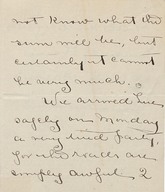 not know what the
sum will be, but
certainly it cannot
be very much.
We arrived here
safely on Monday
a very tired party,
for the roads are
simply awful &